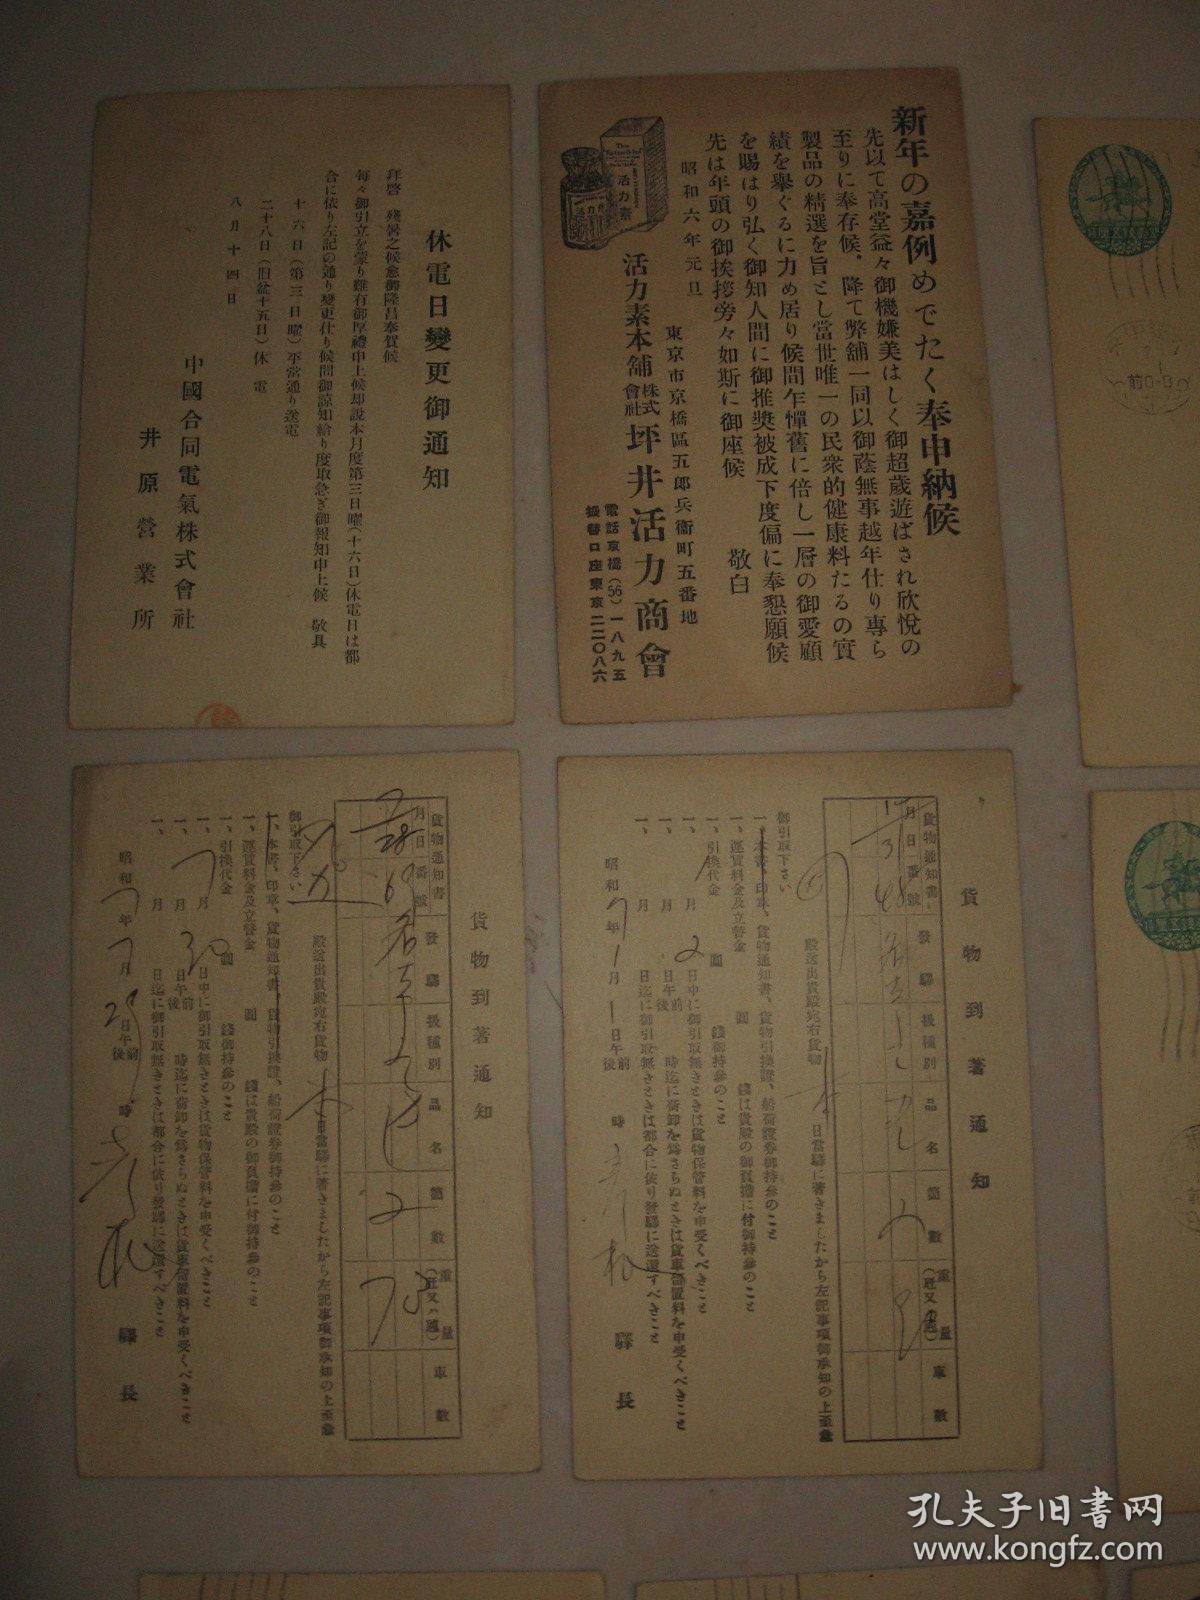 休電日變更御通知
拜啓 殘暑之候愈御隆昌奉賀候
每々御引立を蒙り難有御厚禮申上候却說本月度第三日曜(十六日)休電日は都
合に依り左記の通り變更仕り候間御諒知給り度取急ぎ御報知申上候 敬具
十六日(第三日曜)平常通り送電
二十八日(旧盆十五日)休電
八月十四日
中國合同電氣株式會社
井原營業所
新年の嘉例めでたく奉申納候
先以て高堂益々御機嫌美はしく御超歲遊ばされ欣悅の
至りに奉存候。降て弊舖一同以御蔭無事越年仕り專ら
製品の精選を旨とし當世唯一の民衆的健康料たるの實
績を擧ぐるに力め居り候間乍憚舊に倍し一層の御愛顧
を賜はり弘く御知人間に御推奬被成下度偏に奉懇願候
先は年頭の御挨拶旁々如斯に御座候 敬白
昭和六年元旦
東京市京橋區五郎兵衞町五番地
活力素本舖 株式會社 坪井活力商會
電話京橋(56)一八九五
振替口座東京二二〇八六
活力素
貨物到著通知
貨物通知書
月日 番號 發驛 扱種別 品名 箇數 重量 車數
殿送出貴殿宛右貨物 本日當驛に著きましたから左記事項御承知の上至急
御引取下さい
一、本書、印章、貨物通知書、貨物引換證、船荷證券御持參のこと
一、運賃料金及立替金 圓 錢は貴殿の御負擔に付御持參のこと
一、引換代金 圓 錢御持參のこと
一、7月30日中に御引取無きときは貨物保管料を申受くべきこと
一、月 日午前後 時迄に荷卸を爲さらぬときは貨車留置料を申受くべきこと
一、月 日迄に御引取無きときは都合に依り發驛に送還すべきこと
昭和7年7月29日午前後 時
驛長
貨物到著通知
貨物通知書
月日 番號 發驛 扱種別 品名 箇數 重量 車數
殿送出貴殿宛右貨物 本日當驛に著きましたから左記事項御承知の上至急
御引取下さい
一、本書、印章、貨物通知書、貨物引換證、船荷證券御持參のこと
一、運賃料金及立替金 圓 錢は貴殿の御負擔に付御持參のこと
一、引換代金 圓 錢御持參のこと
一、1月2日中に御引取無きときは貨物保管料を申受くべきこと
一、月 日午前後 時迄に荷卸を爲さらぬときは貨車留置料を申受くべきこと
一、月 日迄に御引取無きときは都合に依り發驛に送還すべきこと
昭和7年1月1日午前後 時
驛長
孔夫子旧书网
www.kongfz.com